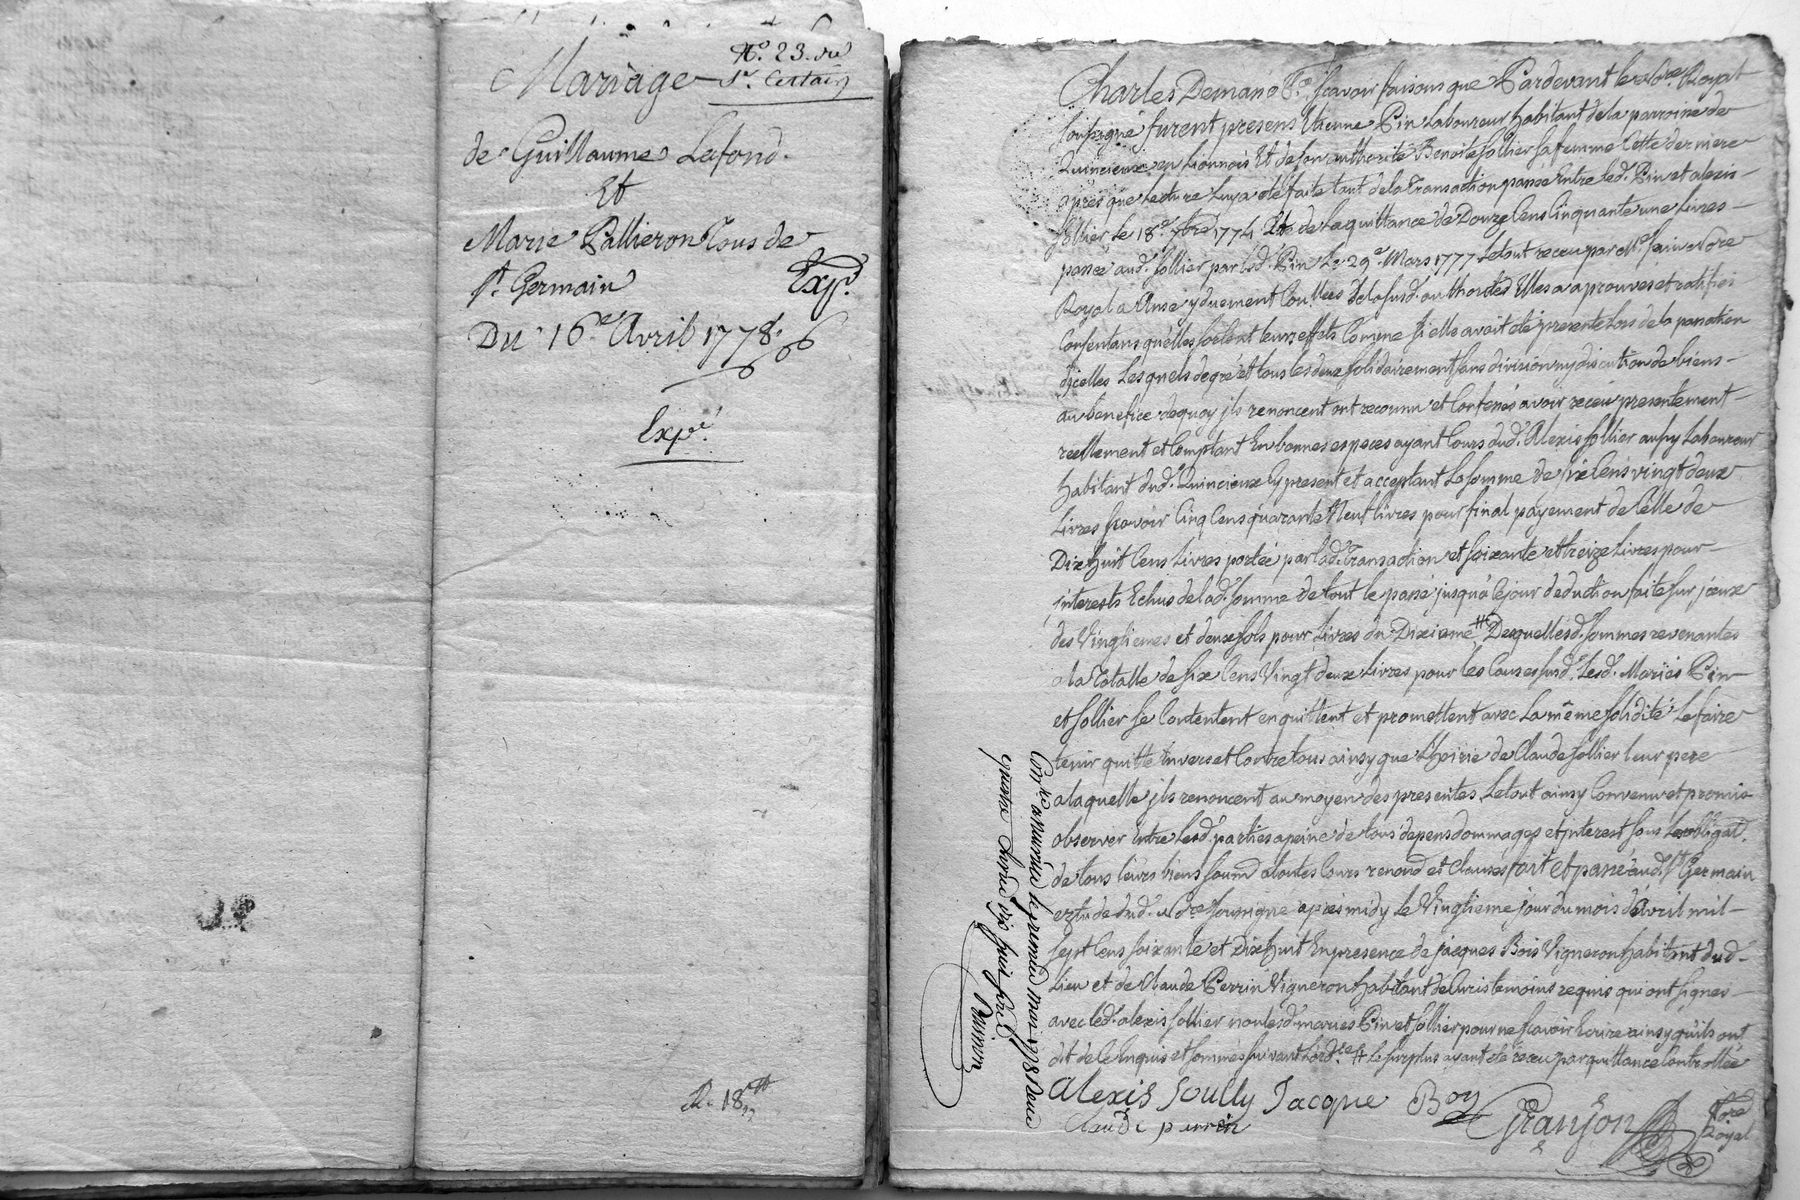 N.º 23. du
Mariage Sr. Certain
de Guillaume Lafond.
Et
Marie Pallieron Tous de
St. Germain Expé.
Du 16e. Avril 1778.
Expé.
R. 18
Charles Demano Fs. scavoir faisons que Pardevant le nore. Royal
soussigné furent presens Etienne Pin Laboureur habitant de la parroisse de
Quincieux en Lionnois Et de son authorité Benoite Sollier sa femme Cette derniere
après que Lecture Luy a été faite tant de la Transaction passée Entre led. Pin et alexis
Sollier le 18e. 7bre 1774 Et de la quittance de Douze Cens Cinquante une Livres
passée aud. Sollier par led. Pin Le 29e. Mars 1777 Le tout receu par Me. nore
Royal a Anse y duement Con‑llées de la susd. authorité Elles a aprouvées et ratifiées
Consentans qu'elles sortent leurs effets Comme si elle avoit été presente Lors de la passation
d'icelles Lesquels de gré et tous les deux solidairement sans division ny discution de biens
au benefice de quoy ils renoncent ont reconnu et Confessé avoir receu presentement
réellement et Comptant En bonnes especes ayant Cours dud. Alexis Sollier aussy Laboureur
habitant dud. Quincieux Cy present et acceptant La somme de six Cens vingt deux
Livres scavoir Cinq Cens quarante Neuf livres pour final payement de Celle de
Dix huit Cens Livres portée par lad. Transaction et soixante et treize Livres pour
interests Echus de lad. somme de tout le passé jusqu'à ce jour deduction faite sur iceux
des Vingtiemes et deux sols pour Livres du Dixieme # Desquelles d. sommes revenantes
a la Totalle de six Cens Vingt deux Livres pour les Causes susd. Lesd. Mariés Pin
et Sollier se Contentent en quittent et promettent avec La même solidité Le faire
tenir quitte Envers et Contre tous ainsy que L'hoirie de Claude Sollier leur pere
a laquelle ils renoncent au moyen des presentes. Le tout ainsy Convenu et promis
observer Entre Lesd. parties a peine de tous depens dommages et interest sous Les obligat.
de tous leurs biens soumd. a toutes Cours renond. et Clauses fait et passé aud. St. Germain
estude dud. nore soussigné après midy Le Vingtieme jour du mois d'Avril mil
sept Cens soixante et Dix huit En presence de jacques Bois Vigneron habitant dud.
Lieu et de Claude Perrin Vigneron habitant de Curis temoins requis qui ont signés
avec led. alexis Sollier non lesd. mariés Pin et Sollier pour ne scavoir Ecrire ainsy qu'ils ont
dit de ce Enquis et sommés suivant L'ordce. # Le surplus ayant été receu par quittance Controllée
Alexis Soully Jacque Boy
Claude perrin Granjon Nore Royal
Con. le premier may 1778 Reçu